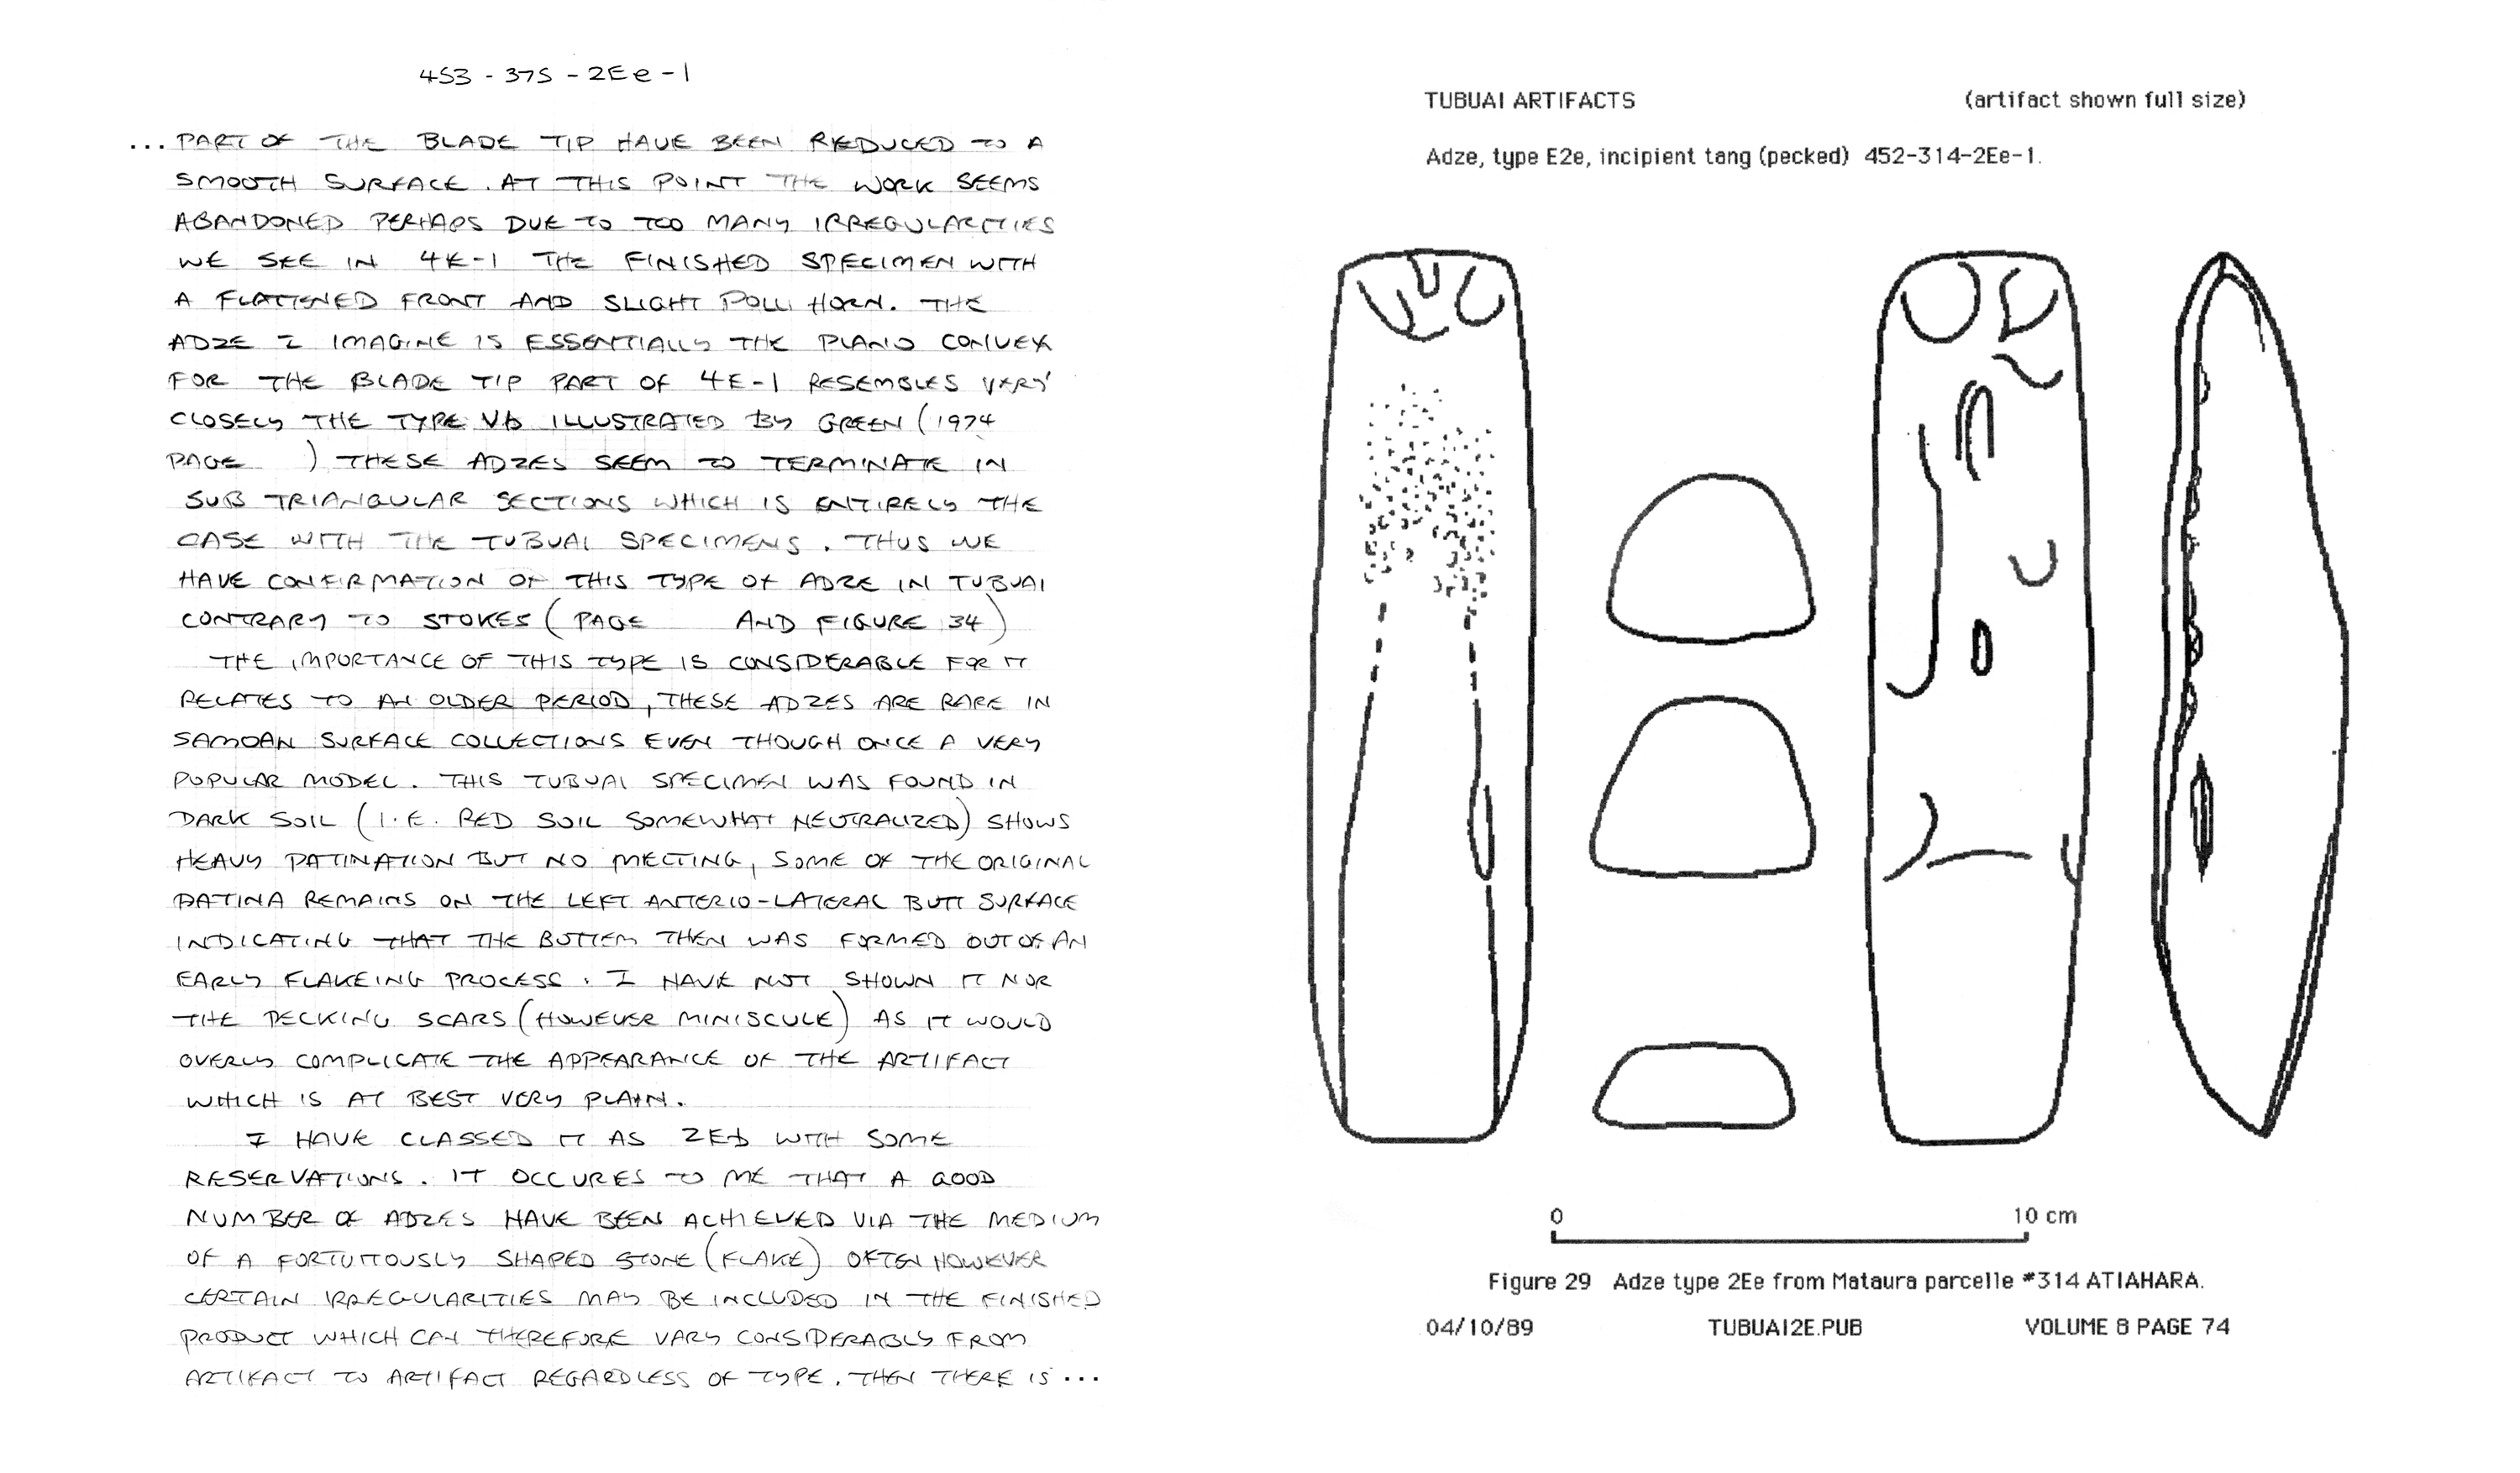 453 - 375 - 2Ee - 1
... PART OF THE BLADE TIP HAVE BEEN REDUCED TO A
SMOOTH SURFACE. AT THIS POINT THE WORK SEEMS
ABANDONED PERHAPS DUE TO TOO MANY IRREGULARITIES
WE SEE IN 4E-1 THE FINISHED SPECIMEN WITH
A FLATTENED FRONT AND SLIGHT POLL HORN. THE
ADZE I IMAGINE IS ESSENTIALLY THE PLANO CONVEX
FOR THE BLADE TIP PART OF 4E-1 RESEMBLES VERY
CLOSELY THE TYPE Vb ILLUSTRATED BY GREEN (1974
PAGE ) THESE ADZES SEEM TO TERMINATE IN
SUB TRIANGULAR SECTIONS WHICH IS ENTIRELY THE
CASE WITH THE TUBUAI SPECIMENS. THUS WE
HAVE CONFIRMATION OF THIS TYPE OF ADZE IN TUBUAI
CONTRARY TO STOKES (PAGE AND FIGURE 34)
THE IMPORTANCE OF THIS TYPE IS CONSIDERABLE FOR IT
RELATES TO AN OLDER PERIOD, THESE ADZES ARE RARE IN
SAMOAN SURFACE COLLECTIONS EVEN THOUGH ONCE A VERY
POPULAR MODEL. THIS TUBUAI SPECIMEN WAS FOUND IN
DARK SOIL (I.E. RED SOIL SOMEWHAT NEUTRALIZED) SHOWS
HEAVY PATINATION BUT NO MELTING, SOME OF THE ORIGINAL
PATINA REMAINS ON THE LEFT ANTERIO-LATERAL BUTT SURFACE
INDICATING THAT THE BOTTEM THEN WAS FORMED OUT OF AN
EARLY FLAKEING PROCESS. I HAVE NOT SHOWN IT NOR
THE PECKING SCARS (HOWEVER MINISCULE) AS IT WOULD
OVERLY COMPLICATE THE APPEARANCE OF THE ARTIFACT
WHICH IS AT BEST VERY PLAIN.
I HAVE CLASSED IT AS 2Eb WITH SOME
RESERVATIONS. IT OCCURES TO ME THAT A GOOD
NUMBER OF ADZES HAVE BEEN ACHIEVED VIA THE MEDIUM
OF A FORTUITOUSLY SHAPED STONE (FLAKE) OFTEN HOWEVER
CERTAIN IRREGULARITIES MAY BE INCLUDED IN THE FINISHED
PRODUCT WHICH CAN THEREFORE VARY CONSIDERABLY FROM
ARTIFACT TO ARTIFACT REGARDLESS OF TYPE. THEN THERE IS ...
TUBUAI ARTIFACTS (artifact shown full size)
Adze, type E2e, incipient tang (pecked) 452-314-2Ee-1.
0 10 cm
Figure 29 Adze type 2Ee from Mataura parcelle #314 ATIAHARA.
04/10/89 TUBUAI2E.PUB VOLUME 8 PAGE 74